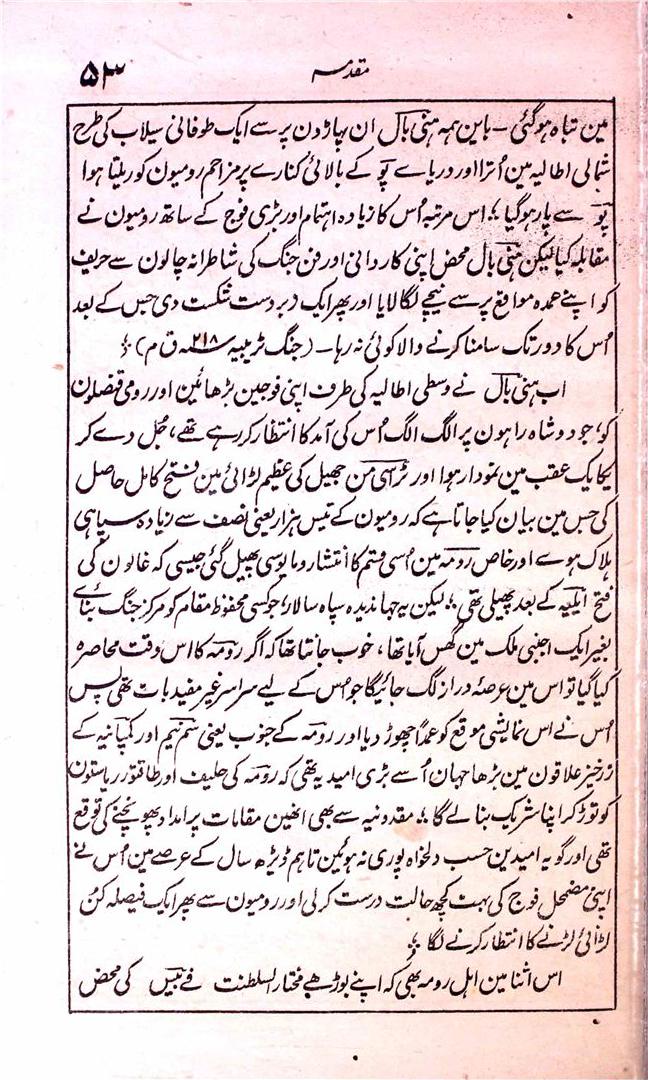 مقدمہ ۵۳
مین تباہ ہوگئی - باین ہمہ ہنی بال ان پہاڑون پر سے ایک طوفانی سیلاب کی طرح
شمالی اطالیہ مین اُترا اور دریاے پَو کے بالائی کنارے پر مزاحم رومیون کو ریلتا ہوا
پَو سے پار ہوگیا ؛ اس مرتبہ اُس کا زیادہ اہتمام اور بڑی فوج کے ساتھ رومیون نے
مقابلہ کیا لیکن ہنی بال محض اپنی کاردانی اور فن جنگ کی شاطرانہ چالون سے حریف
کو اپنے عمدہ مواقع پر سے نیچے لگا لایا اور پھر ایک زبردست شکست دی جس کے بعد
اُس کا دور تک سامنا کرنے والا کوئی نہ رہا - (جنگ ٹریبیہ ۲۱۸ ق م) ؛
اب ہنی بال نے وسطی اطالیہ کی طرف اپنی فوجین بڑھائین اور رومی قنصلون
کو، جو دو شاہ راہون پر الگ الگ اُس کی آمد کا انتظار کر رہے تھے، جُل دے کر
یکایک عقب مین نمودار ہوا اور ٹراسی من جھیل کی عظیم لڑائی مین فتح کامل حاصل
کی جس مین بیان کیا جاتا ہے کہ رومیون کے تیس ہزار یعنی نصف سے زیادہ سپاہی
ہلاک ہوے اور خاص رومہ مین اُسی قسم کا انتشار و مایوسی پھیل گئی جیسی کہ غالون کی
فتح ایلیہ کے بعد پھیلی تھی ؛ لیکن یہ جہاندیدہ سپاہ سالار، جو کسی محفوظ مقام کو مرکز جنگ بنائے
بغیر ایک اجنبی ملک مین گھس آیا تھا، خوب جانتا تھا کہ اگر رومہ کا اس وقت محاصرہ
کیا گیا تو اس مین عرصۂ دراز لگ جائیگا جو اُس کے لیے سراسر غیر مفید بات تھی پس
اُس نے اس نمایشی موقع کو عمداً چھوڑ دیا اور رومہ کے جنوب یعنی سَم نیم اور کمپانیہ کے
زرخیز علاقون مین بڑھا جہان اُسے بڑی امید یہ تھی کہ رومہ کی حلیف اور طاقتور ریاستون
کو توڑ کر اپنا شریک بنا لے گا ؛ مقدونیہ سے بھی انھین مقامات پر امداد پھونچنے کی توقع
تھی اور گو یہ امیدین حسب دلخواہ پوری نہ ہوئین تاہم ڈیڑھ سال کے عرصے مین اُس نے
اپنی مضمحل فوج کی بہت کچھ حالت درست کر لی اور رومیون سے پھر ایک فیصلہ کُن
لڑائی لڑنے کا انتظار کرنے لگا ؛
اس اثنا مین اہل رومہ بھی کہ اپنے بوڑھے مختار السلطنت فے بیس کی محض